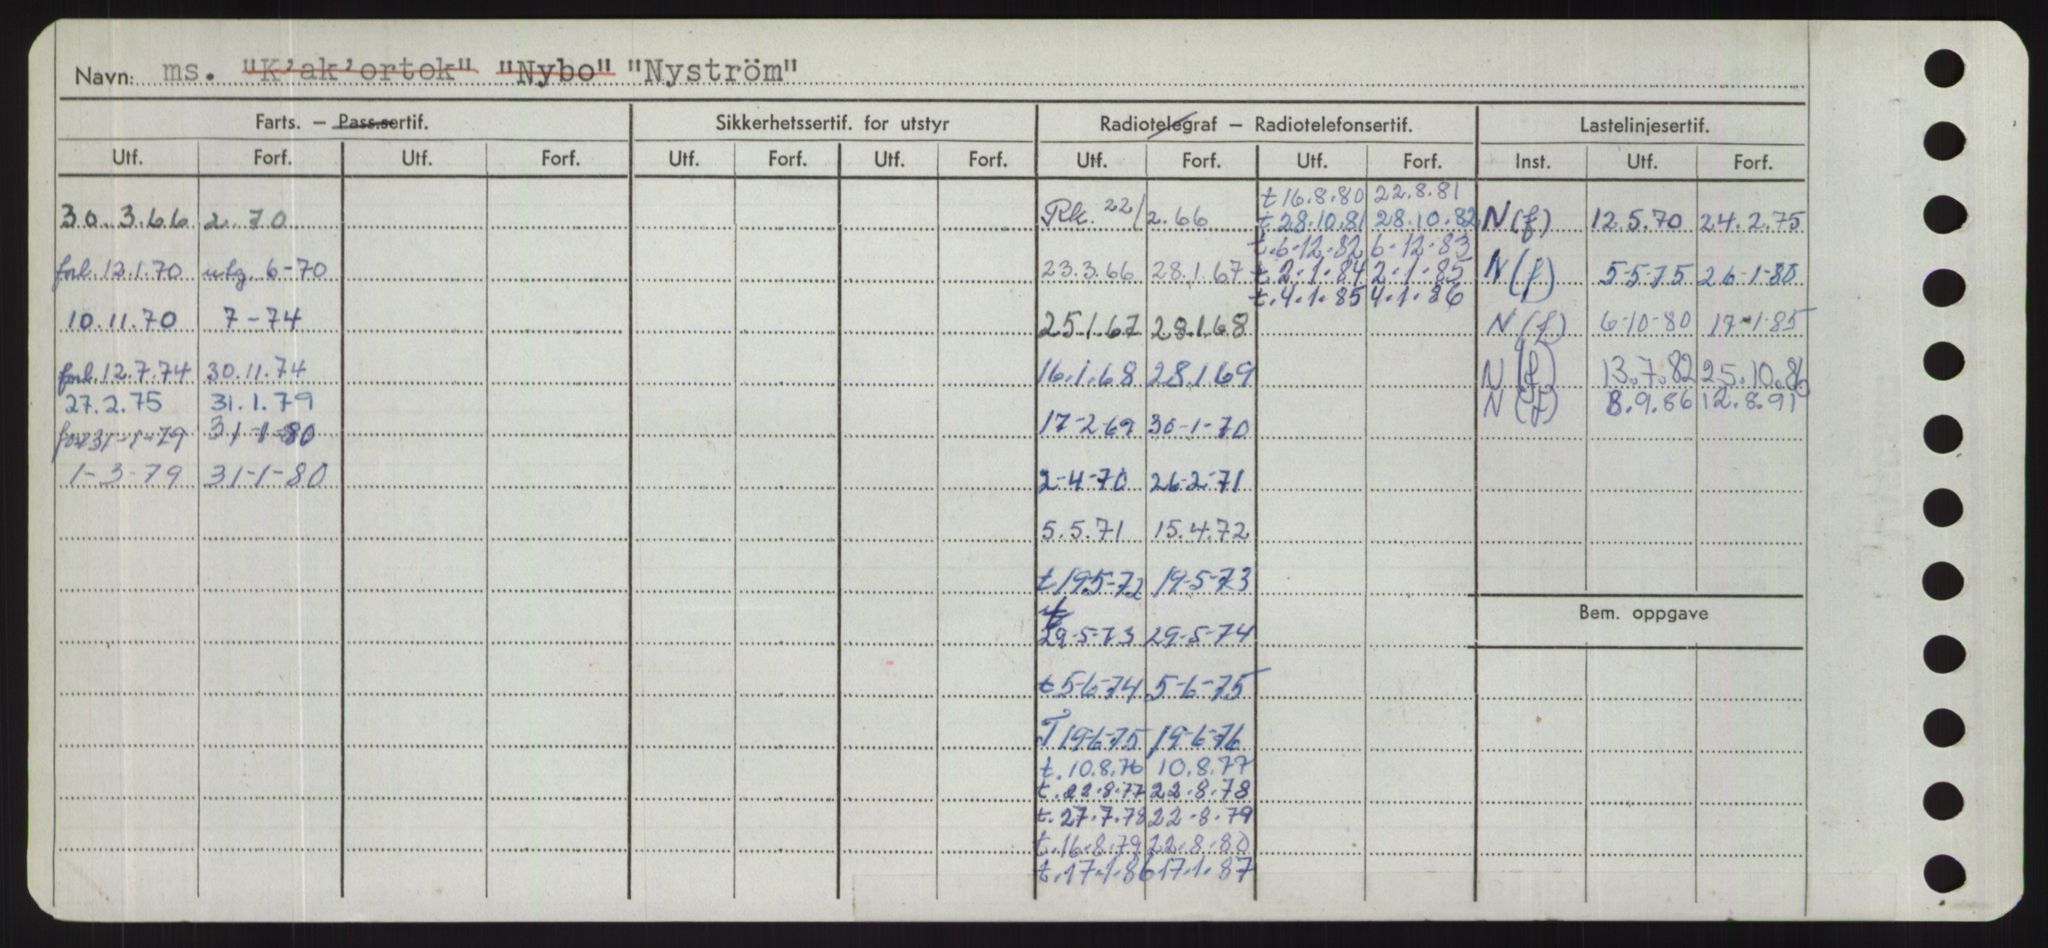 Navn: ms. "K'ak'ortok" "Nybo" "Nyström"
Farts. — Pass.sertif. Sikkerhetssertif. for utstyr Radiotelegraf — Radiotelefonsertif. Lastelinjesertif.
Utf. Forf. Utf. Forf. Utf. Forf. Utf. Forf. Utf. Forf. Utf. Forf. Inst. Utf. Forf.
t 16.8.80 22.8.81
30.3.66 2.70 Rk. 22/2.66 t 28.10.81 28.10.82 N(f) 12.5.70 24.2.75
t.6-12-82 6-12-83
forl. 12.1.70 utg. 6-70 23.3.66 28.1.67 t 2-1-84 2-1-85 N(f) 5-5-75 26-1-80
t.4.1.85 4.1.86
10.11.70 7-74 25.1.67 28.1.68 N(f) 6-10-80 17-1-85
forl. 12.7.74 30.11.74 16.1.68 28.1.69 N(f) 13.7.82 25.10.86
27.2.75 31.1.79 N(f) 8.9.86 12.8.91
forl 31-1-79 31-1-80 17-2-69 30-1-70
1-3-79 31-1-80 2-4-70 26-2-71
5.5.71 15.4.72
t 19-5-72 19-5-73
29-5-73 29-5-74
Bem. oppgave
t 5-6-74 5-6-75
T 19-6-75 19-6-76
t. 10.8.76 10.8.77
t. 22.8.77 22.8.78
t. 27.7.78 22.8.79
t. 16.8.79 22.8.80
t. 17.1.86 17.1.87